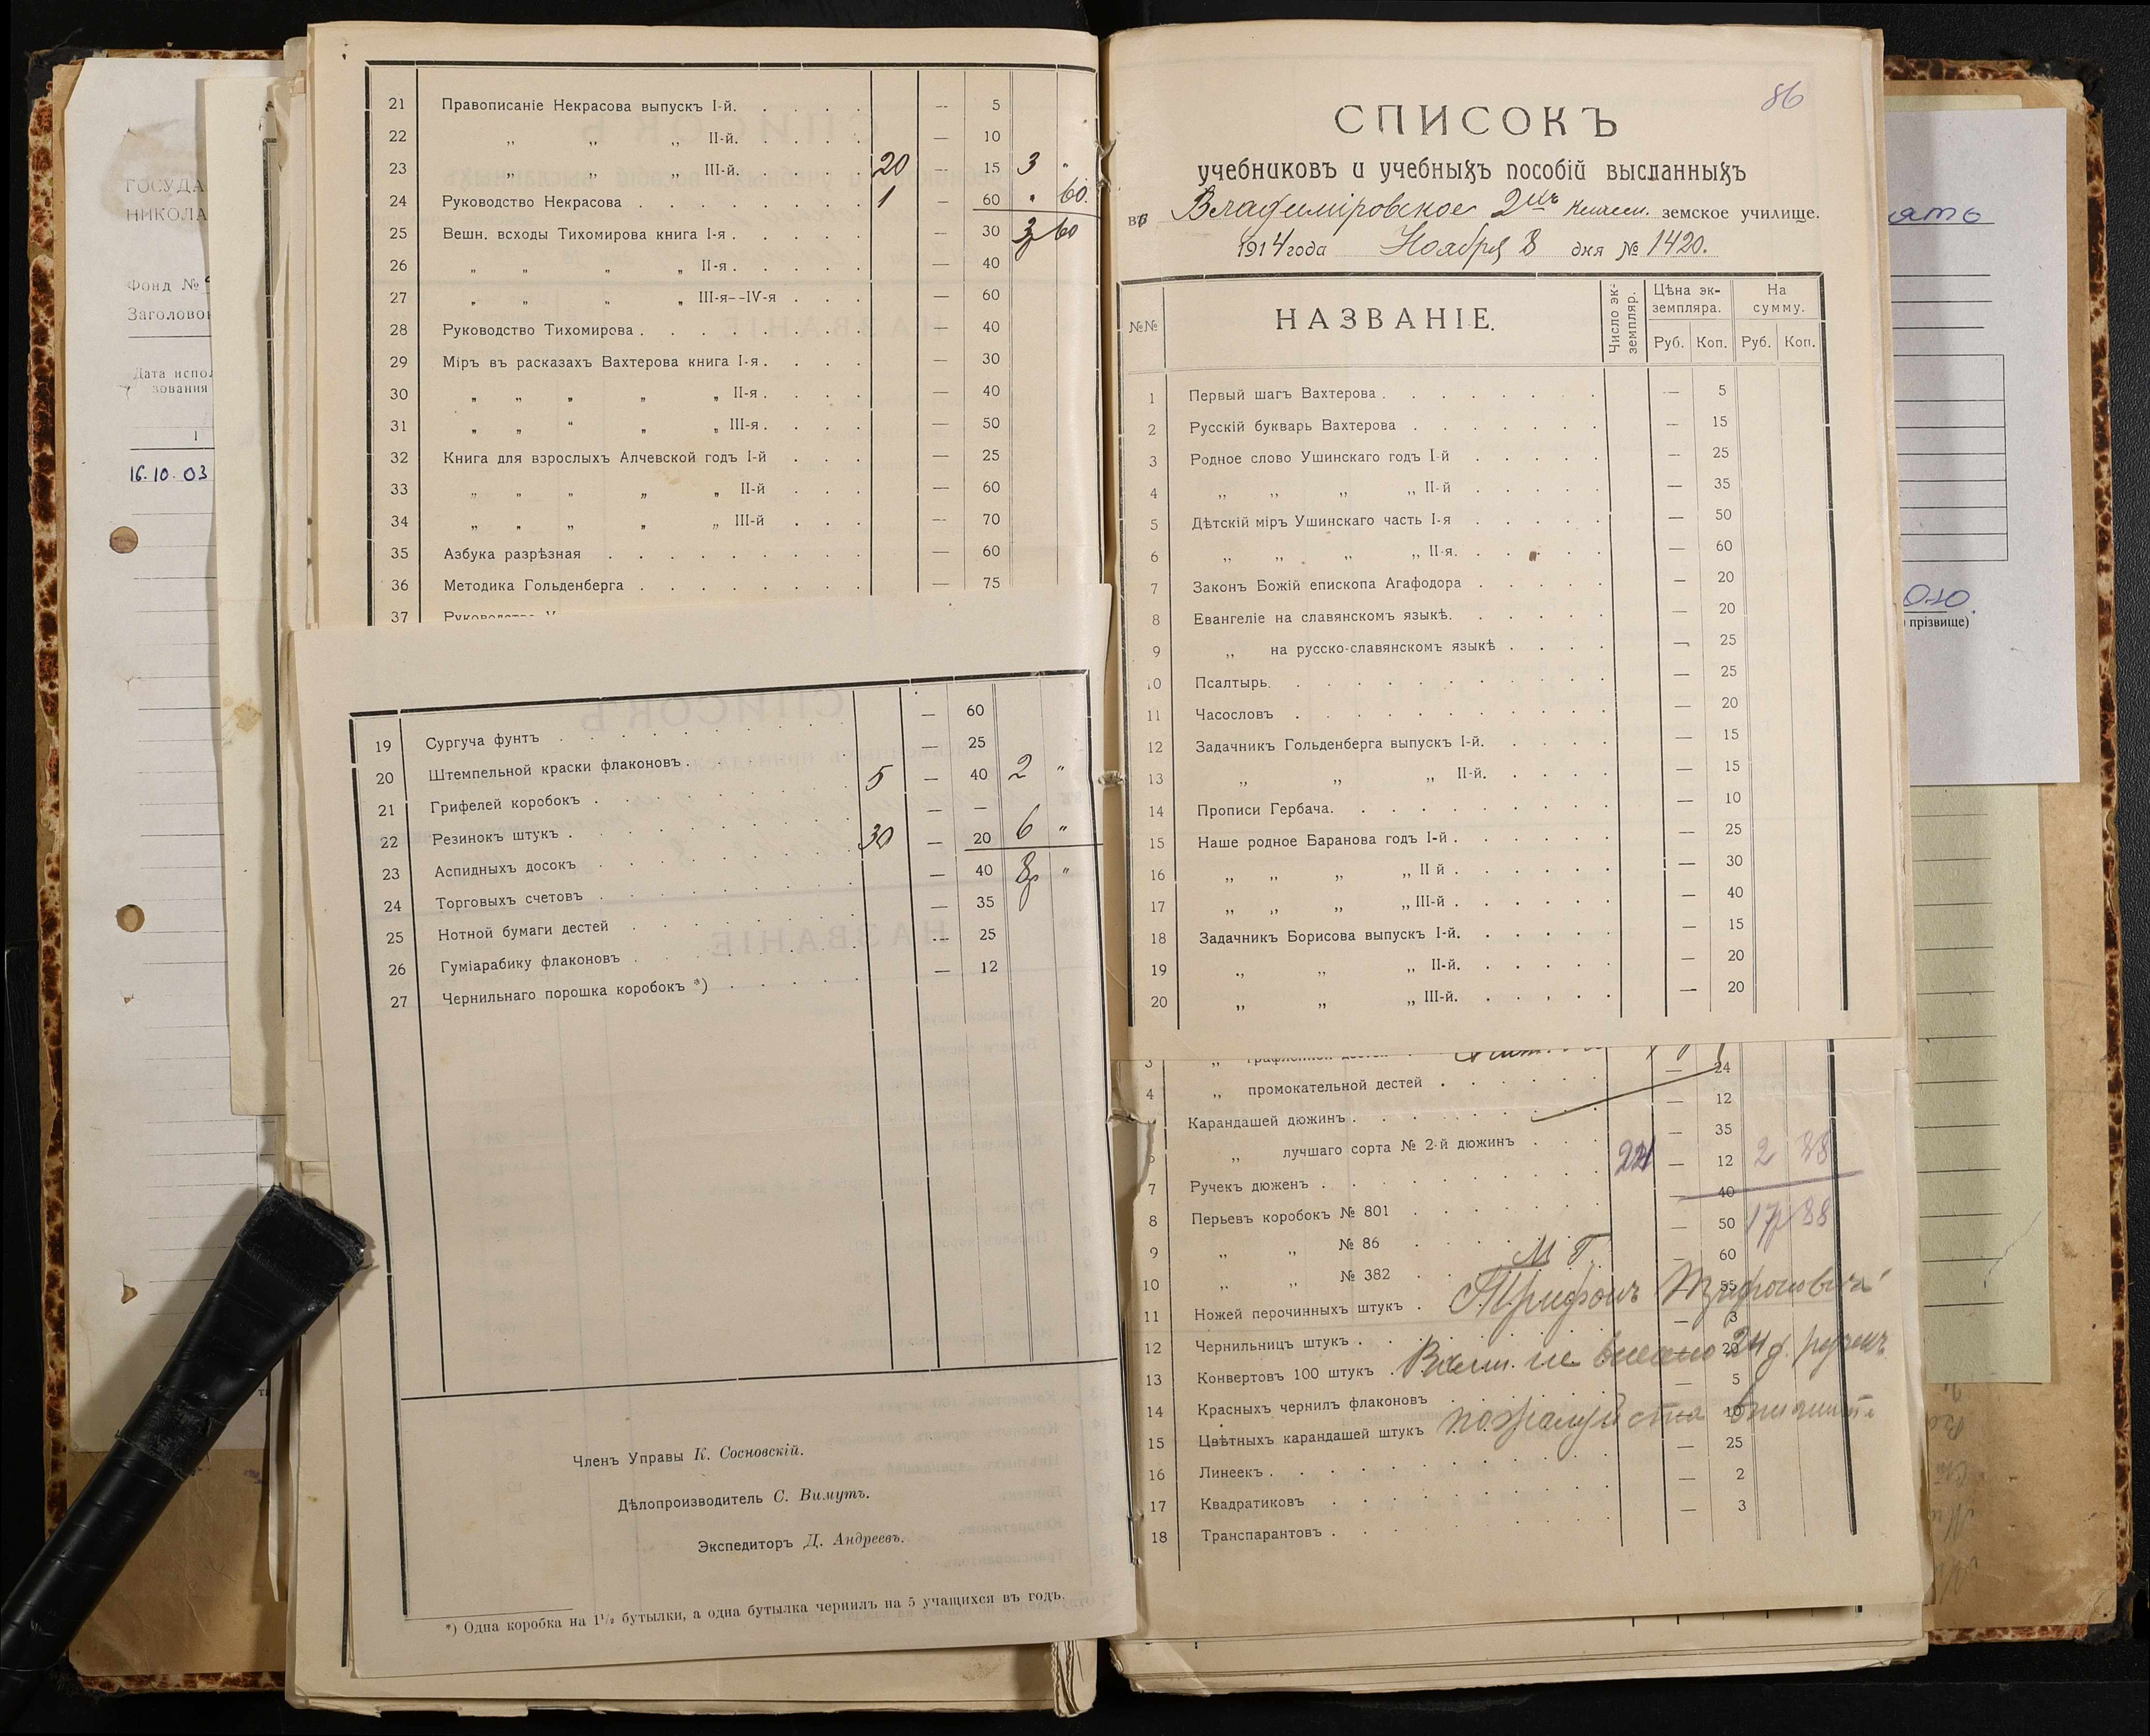 21 Правописаніе Некрасова выпускъ I-й. — 5
22 „ „ „ II-й. — 10
23 „ „ „ III-й. 20 — 15 3 „
24 Руководство Некрасова 1 — 60 „ 60.
25 Вешн. всходы Тихомирова книга I-я — 30 3р 60
26 „ „ „ „ II-я — 40
27 „ „ „ „ III-я--IV-я — 60
28 Руководство Тихомирова — 40
29 Міръ въ расказахъ Вахтерова книга I-я — 30
30 „ „ „ „ „ II-я — 40
31 „ „ „ „ „ III-я — 50
32 Книга для взрослыхъ Алчевской годъ I-й — 25
33 „ „ „ „ „ II-й — 60
34 „ „ „ „ „ III-й — 70
35 Азбука разрѣзная — 60
36 Методика Гольденберга — 75
37
19 Сургуча фунтъ — 60
20 Штемпельной краски флаконовъ — 25
21 Грифелей коробокъ 5 — 40 2 „
22 Резинокъ штукъ — —
23 Аспидныхъ досокъ 30 — 20 6 „
24 Торговыхъ счетовъ — 40 8р „
25 Нотной бумаги дестей — 35
26 Гуміарабику флаконовъ — 25
27 Чернильнаго порошка коробокъ *) — 12
Членъ Управы К. Сосновскій.
Дѣлопроизводитель С. Вимутъ.
Экспедиторъ Д. Андреевъ.
*) Одна коробка на 1½ бутылки, а одна бутылка чернилъ на 5 учащихся въ годъ.
86
СПИСОКЪ
учебниковъ и учебныхъ пособій высланныхъ
въ Владиміровское 2хъ класси. земское училище.
1914 года Ноября 8 дня № 1420.
№№ НАЗВАНІЕ. Число экземпляр. Цѣна экземпляра. На сумму.
Руб. Коп. Руб. Коп.
1 Первый шагъ Вахтерова — 5
2 Русскій букварь Вахтерова — 15
3 Родное слово Ушинскаго годъ I-й — 25
4 „ „ „ „ II-й — 35
5 Дѣтскій міръ Ушинскаго часть I-я — 50
6 „ „ „ „ II-я. — 60
7 Законъ Божій епископа Агафодора — 20
8 Евангеліе на славянскомъ языкѣ. — 20
9 „ на русско-славянскомъ языкѣ — 25
10 Псалтырь. — 25
11 Часословъ — 20
12 Задачникъ Гольденберга выпускъ I-й. — 15
13 „ „ „ II-й. — 15
14 Прописи Гербача. — 10
15 Наше родное Баранова годъ I-й — 25
16 „ „ „ „ II й — 30
17 „ „ „ „ III-й — 40
18 Задачникъ Борисова выпускъ I-й. — 15
19 „ „ „ II-й. — 20
20 „ „ „ III-й. — 20
3 „
4 „ промокательной дестей — 24
Карандашей дюжинъ — 12
„ лучшаго сорта № 2-й дюжинъ — 35
7 Ручекъ дюженъ 24 — 12 2 88
8 Перьевъ коробокъ № 801 — 40
9 „ „ № 86 — 50 17р 88
10 „ „ № 382 60
М Г
11 Ножей перочинныхъ штукъ 55
Трифонъ Трифоновичъ
12 Чернильницъ штукъ — 3
13 Конвертовъ 100 штукъ — 20
не внесено 24 д. ручекъ
14 Красныхъ чернилъ флаконовъ — 5
15 Цвѣтныхъ карандашей штукъ 10
пожалуйста
16 Линеекъ — 25
17 Квадратиковъ — 2
18 Транспарантовъ — 3
ГОСУДА
НИКОЛА
Фонд №
Заголово
Дата испол
зования
1
16.10.03
прізвище)